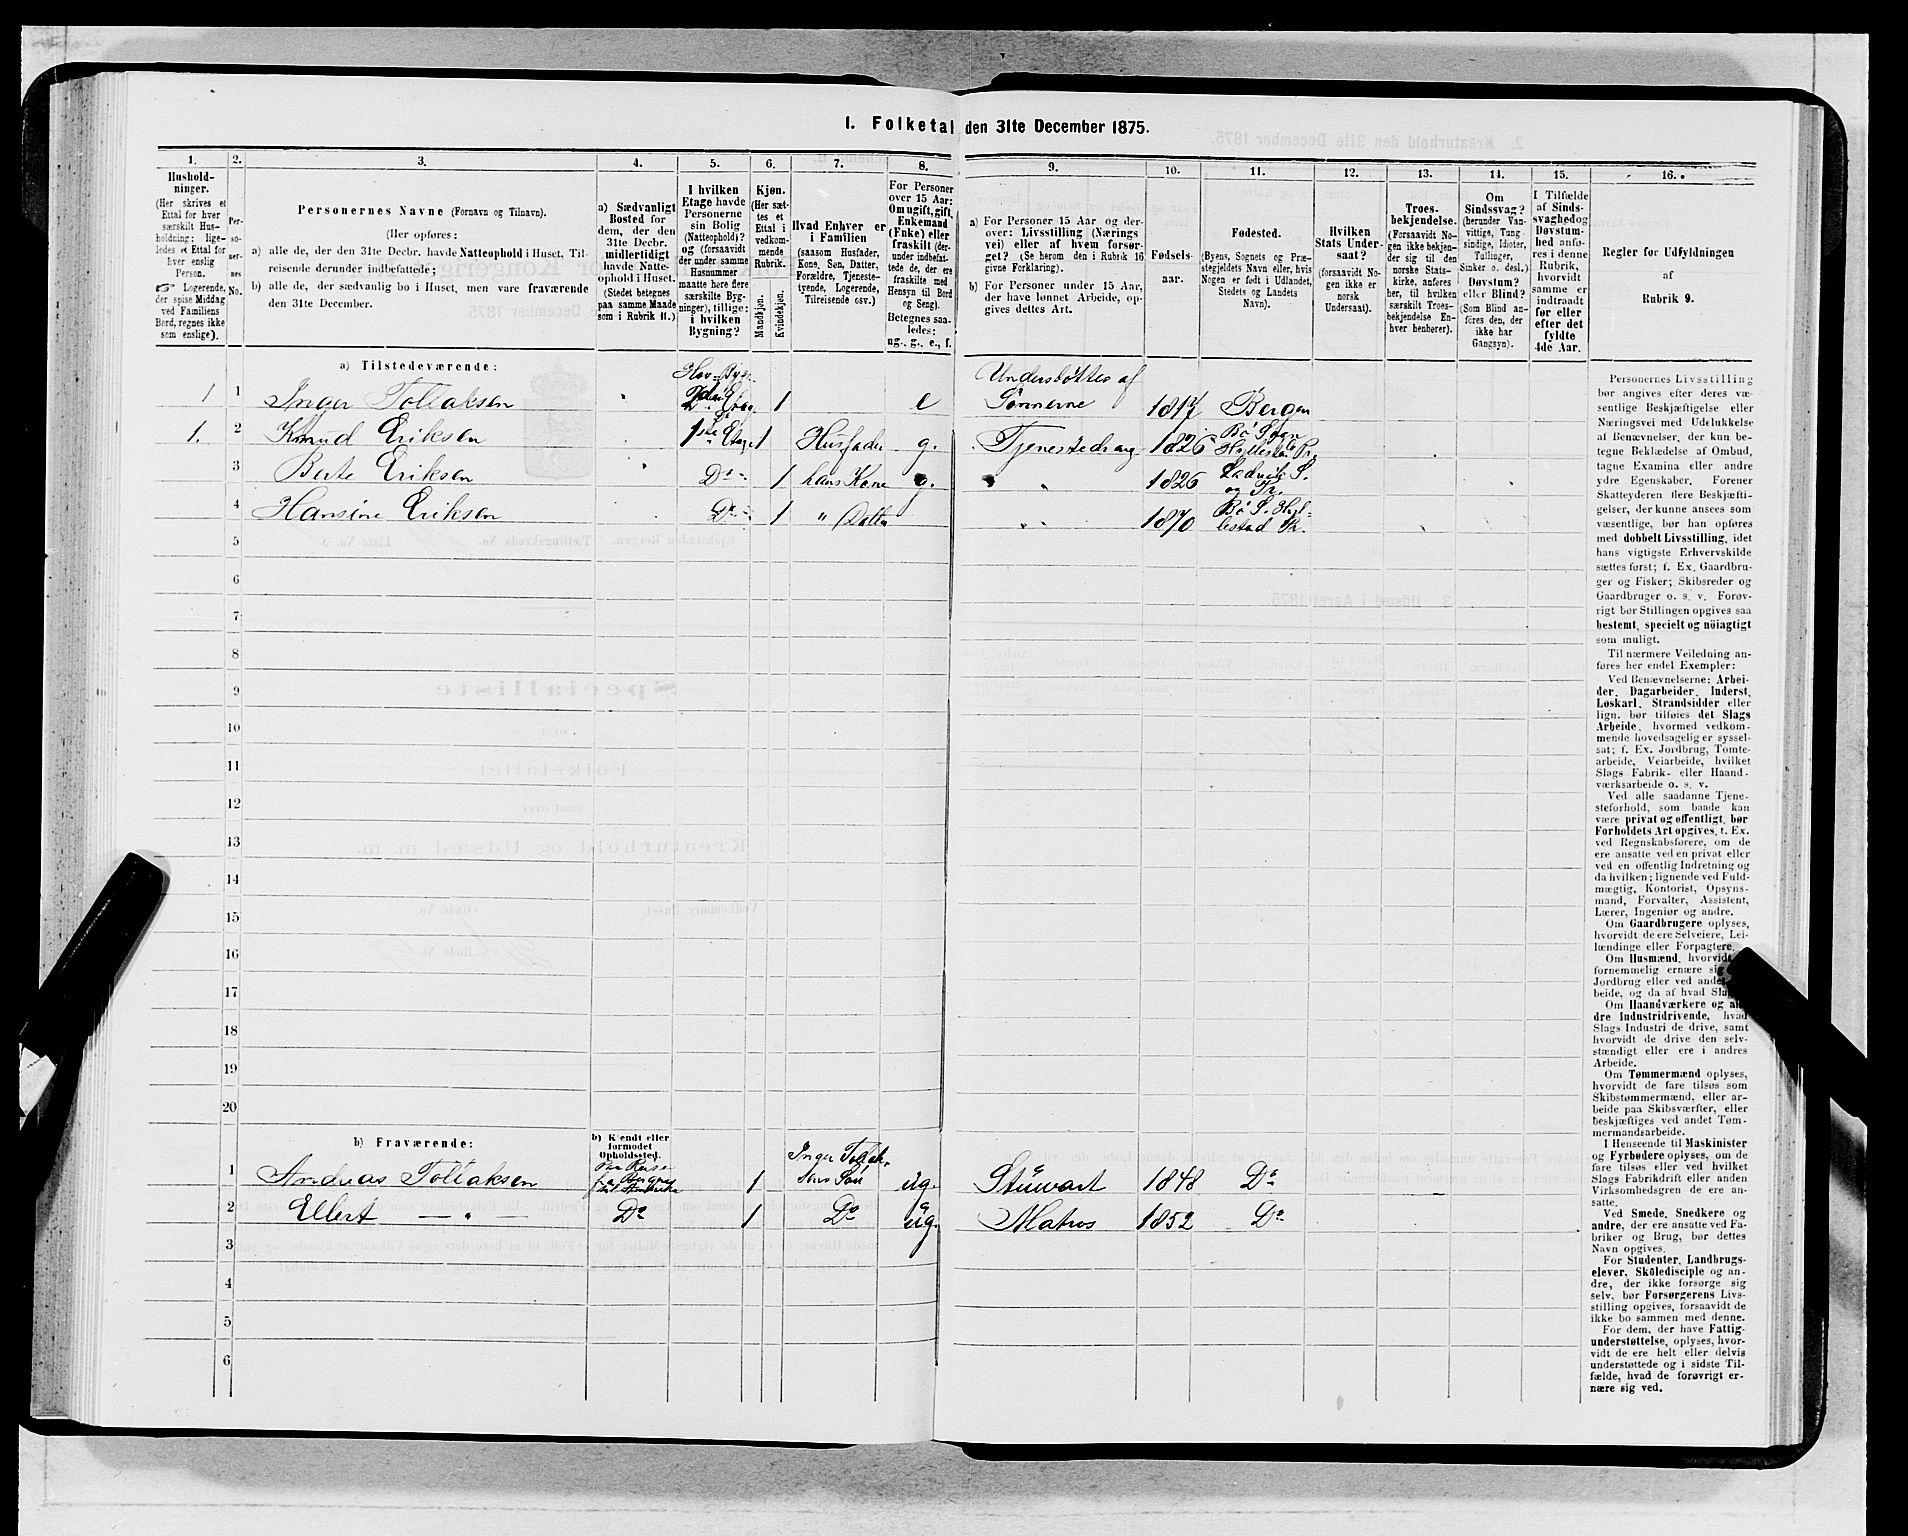 1. Folketal den 31te December 1875.
1.
2.
3.
4.
5.
6.
7.
8.
9.
10.
11.
12.
13.
14.
15.
16.
Hushold-
ninger.
(Her skrives et
Ettal for hver
særskilt Hus-
holdning; lige-
ledes et Ettal for
hver enslig
Person.
☞ Logerende,
der spise Middag
ved Familiens
Bord, regnes ikke
som enslige).
Per-
so-
ner-
nes
No.
Personernes Navne (Fornavn og Tilnavn).
(Her opføres:
a) alle de, der den 31te Decbr. havde Natteophold i Huset, Til-
reisende derunder indbefattede;
b) alle de, der sædvanlig bo i Huset, men vare fraværende
den 31te December.
a) Sædvanligt
Bosted for
dem, der den
31te Decbr.
midlertidigt
havde Natte-
ophold i Huset.
(Stedet betegnes
paa samme Maade
som i Rubrik 11.)
I hvilken
Etage havde
Personerne
sin Bolig
(Natteophold)?
og (forsaavidt
der under samme
Husnummer
maatte høre flere
særskilte Byg-
ninger), tillige:
i hvilken
Bygning?
Kjøn.
(Her sæt-
tes et
Ettal i
vedkom-
mende
Rubrik.
Mandkjøn.
Kvindekjøn.
Hvad Enhver er
i Familien
(saasom Husfader,
Kone, Søn, Datter,
Forældre, Tjeneste-
tyende, Logerende,
Tilreisende osv.)
For Personer
over 15 Aar:
Om ugift, gift,
Enkemand
(Enke) eller
fraskilt (der-
under indbefat-
tede de, der ere
fraskilte med
Hensyn til Bord
og Seng).
Betegnes saa-
ledes:
ug., g., e., f.
a) For Personer 15 Aar og der-
over: Livsstilling (Nærings
vei) eller af hvem forsør-
get? (Se herom den i Rubrik 16
givne Forklaring).
b) For Personer under 15 Aar,
der have lønnet Arbeide, op-
gives dettes Art.
Fødsels-
aar.
Fødested.
(Byens, Sognets og Præ-
stegjeldets Navn eller, hvis
Nogen er født i Udlandet,
Stedets og Landets
Navn).
Hvilken
Stats Under-
saat?
(forsaavidt No-
gen ikke er
norsk
Undersaat).
Troes-
bekjendelse.
(Forsaavidt No-
gen ikke bekjen-
der sig til den
norske Stats-
kirke, anføres
her, til hvilken
særskilt Troes-
bekjendelse En-
hver henhører).
Om
Sindssvag?
(herunder Van-
vittige, Tung-
sindige, Idioter,
Tullinger,
Sinker o. desl.)
Døvstum?
eller Blind?
(Som Blind an-
føres den, der
ikke har
Gangsyn).
I Tilfælde
af Sinds-
svaghed og
Døvstum-
hed anfø-
res i denne
Rubrik,
hvorvidt
samme er
indtraadt
før eller
efter det
fyldte
4de Aar.
Regler for Udfyldningen
af
Rubrik 9.
a) Tilstedeværende:
1 1 Inger Tollaksen 2den Etage 1 e Understöttes af Sönnerne 1817 Bergen
1. 2 Knud Eriksen 1ste Etage 1 Husfader g. Tjenestedreng 1826 Bö Sogn
3 Berte Eriksen Do 1 hans Kone g. " 1826 Ladvik S. og Pr.
4 Hansine Eriksen Do 1 " Datter " 1870 Bö S. Hyl-
lestad Pr.
5
6
7
8
9
10
11
12
13
14
15
16
17
18
19
20
b) Fraværende:
b) Kjendt eller
formodet
Opholdssted.
1 Andreas Tollaksen paa Reise fra 1 Inger Tollak-
sens Søn ug. Stüwart 1848 Do
2 Ellert — " — Do 1 Do ug. Matros 1852 Do
3
4
5
6
Personernes Livsstilling
bør angives efter deres væ-
sentlige Beskjæftigelse eller
Næringsvei med Udelukkelse
af Benævnelser, der kun be-
tegne Beklædelse af Ombud,
tagne Examina eller andre
ydre Egenskaber. Forener
Skatteyderen flere Beskjæfti-
gelser, der kunne ansees som
væsentlige, bør han opføres
med dobbelt Livsstilling, idet
hans vigtigste Erhvervskilde
sættes først; f. Ex. Gaardbru-
ger og Fisker; Skibsreder og
Gaardbruger o. s. v. Forøv-
rigt bør Stillingen opgives saa
bestemt, specielt og nöiagtigt
som muligt.
Til nærmere Veiledning an-
føres her endel Exempler:
Ved Benævnelserne: Arbei-
der, Dagarbeider, Inderst,
Løskarl, Strandsidder eller
lign. bør tilføies det Slags
Arbeide, hvormed vedkom-
mende hovedsagelig er syssel-
sat; f. Ex. Jordbrug, Tomte-
arbeide, Veiarbeide, hvilket
Slags Fabrik- eller Haand-
værksarbeide o. s. v.
Ved alle saadanne Tjene-
steforhold, som baade kan
være privat og offentligt, bør
Forholdets Art opgives, t. Ex.
ved Regnskabsførere, om de
ere ansatte ved en privat eller
ved en offentlig Indretning og
da hvilken; lignende ved Fuld-
mægtig, Kontorist, Opsyns-
mand, Forvalter, Assistent,
Lærer, Ingeniør og andre.
Om Gaardbrugere oplyses,
hvorvidt de ere Selveiere, Lei-
lændinge eller Forpagtere.
Om Husmænd, hvorvidt
fornemmelig ernære
Jordbrug eller ved
beide, og da af hvad
Om Haandværkere og
dre Industridrivende, hvad
Slags Industri de drive, samt
hvorvidt de drive den selv-
stændigt eller ere i andres
Arbeide.
Om Tømmermænd oplyses,
hvorvidt de fare tilsøs som
Skibstømmermænd, eller ar-
beide paa Skibsværfter, eller
beskjæftiges ved andet Tøm-
mermandsarbeide.
I Henseende til Maskinister
og Fyrbødere oplyses, om de
fare tilsøs eller ved hvilket
Slags Fabrikdrift eller anden
Virksomhedsgren de ere an-
satte.
Ved Smede, Snedkere og
andre, der ere ansatte ved Fa-
briker og Brug, bør dettes
Navn opgives.
For Studenter, Landbrugs-
elever, Skoledisciple og an-
dre, der ikke forsørge sig
selv, bør Forsørgerens Livs-
stilling opgives, forsaavidt de
ikke bo sammen med denne.
For dem, der have Fattig-
understøttelse, oplyses, hvor-
vidt de ere helt eller delvis
understøttede og i sidste Til-
fælde, hvad de forøvrigt er-
nære sig ved.